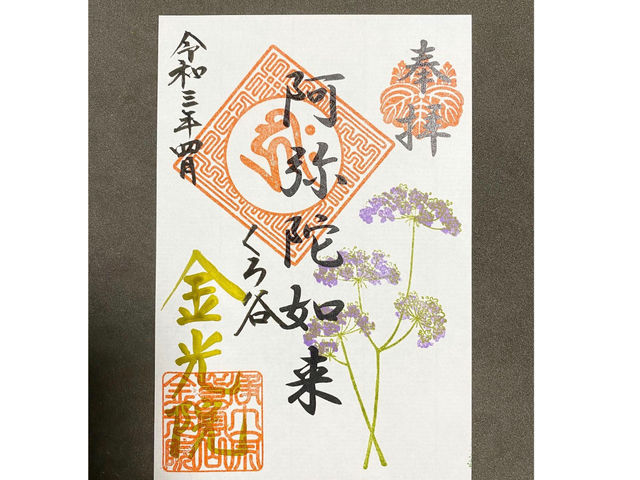 奉拝
阿弥陀如来
くろ谷
金光院
令和三年四月